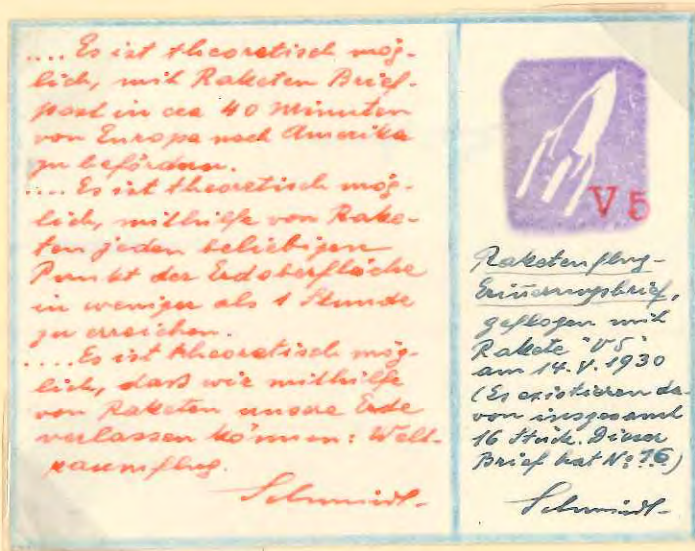 .... Es ist theoretisch mög-
lich, mit Raketen Brief-
post in cca 40 Minuten
von Europa nach Amerika
zu befördern.
.... Es ist theoretisch mög-
lich, mithilfe von Rake-
ten jeden beliebigen
Punkt der Erdoberfläche
in weniger als 1 Stunde
zu erreichen.
.... Es ist theoretisch mög-
lich, daß wir mithilfe
von Raketen unsere Erde
verlassen können: Welt-
raumflug.
Schmiedl-
V5
Raketenflug-
Erinnerungsbrief,
geflogen mit
Rakete "V5"
am 14. V. 1930
(Es existieren da-
von insgesamt
16 Stück. Dieser
Brief hat No 16)
Schmiedl-